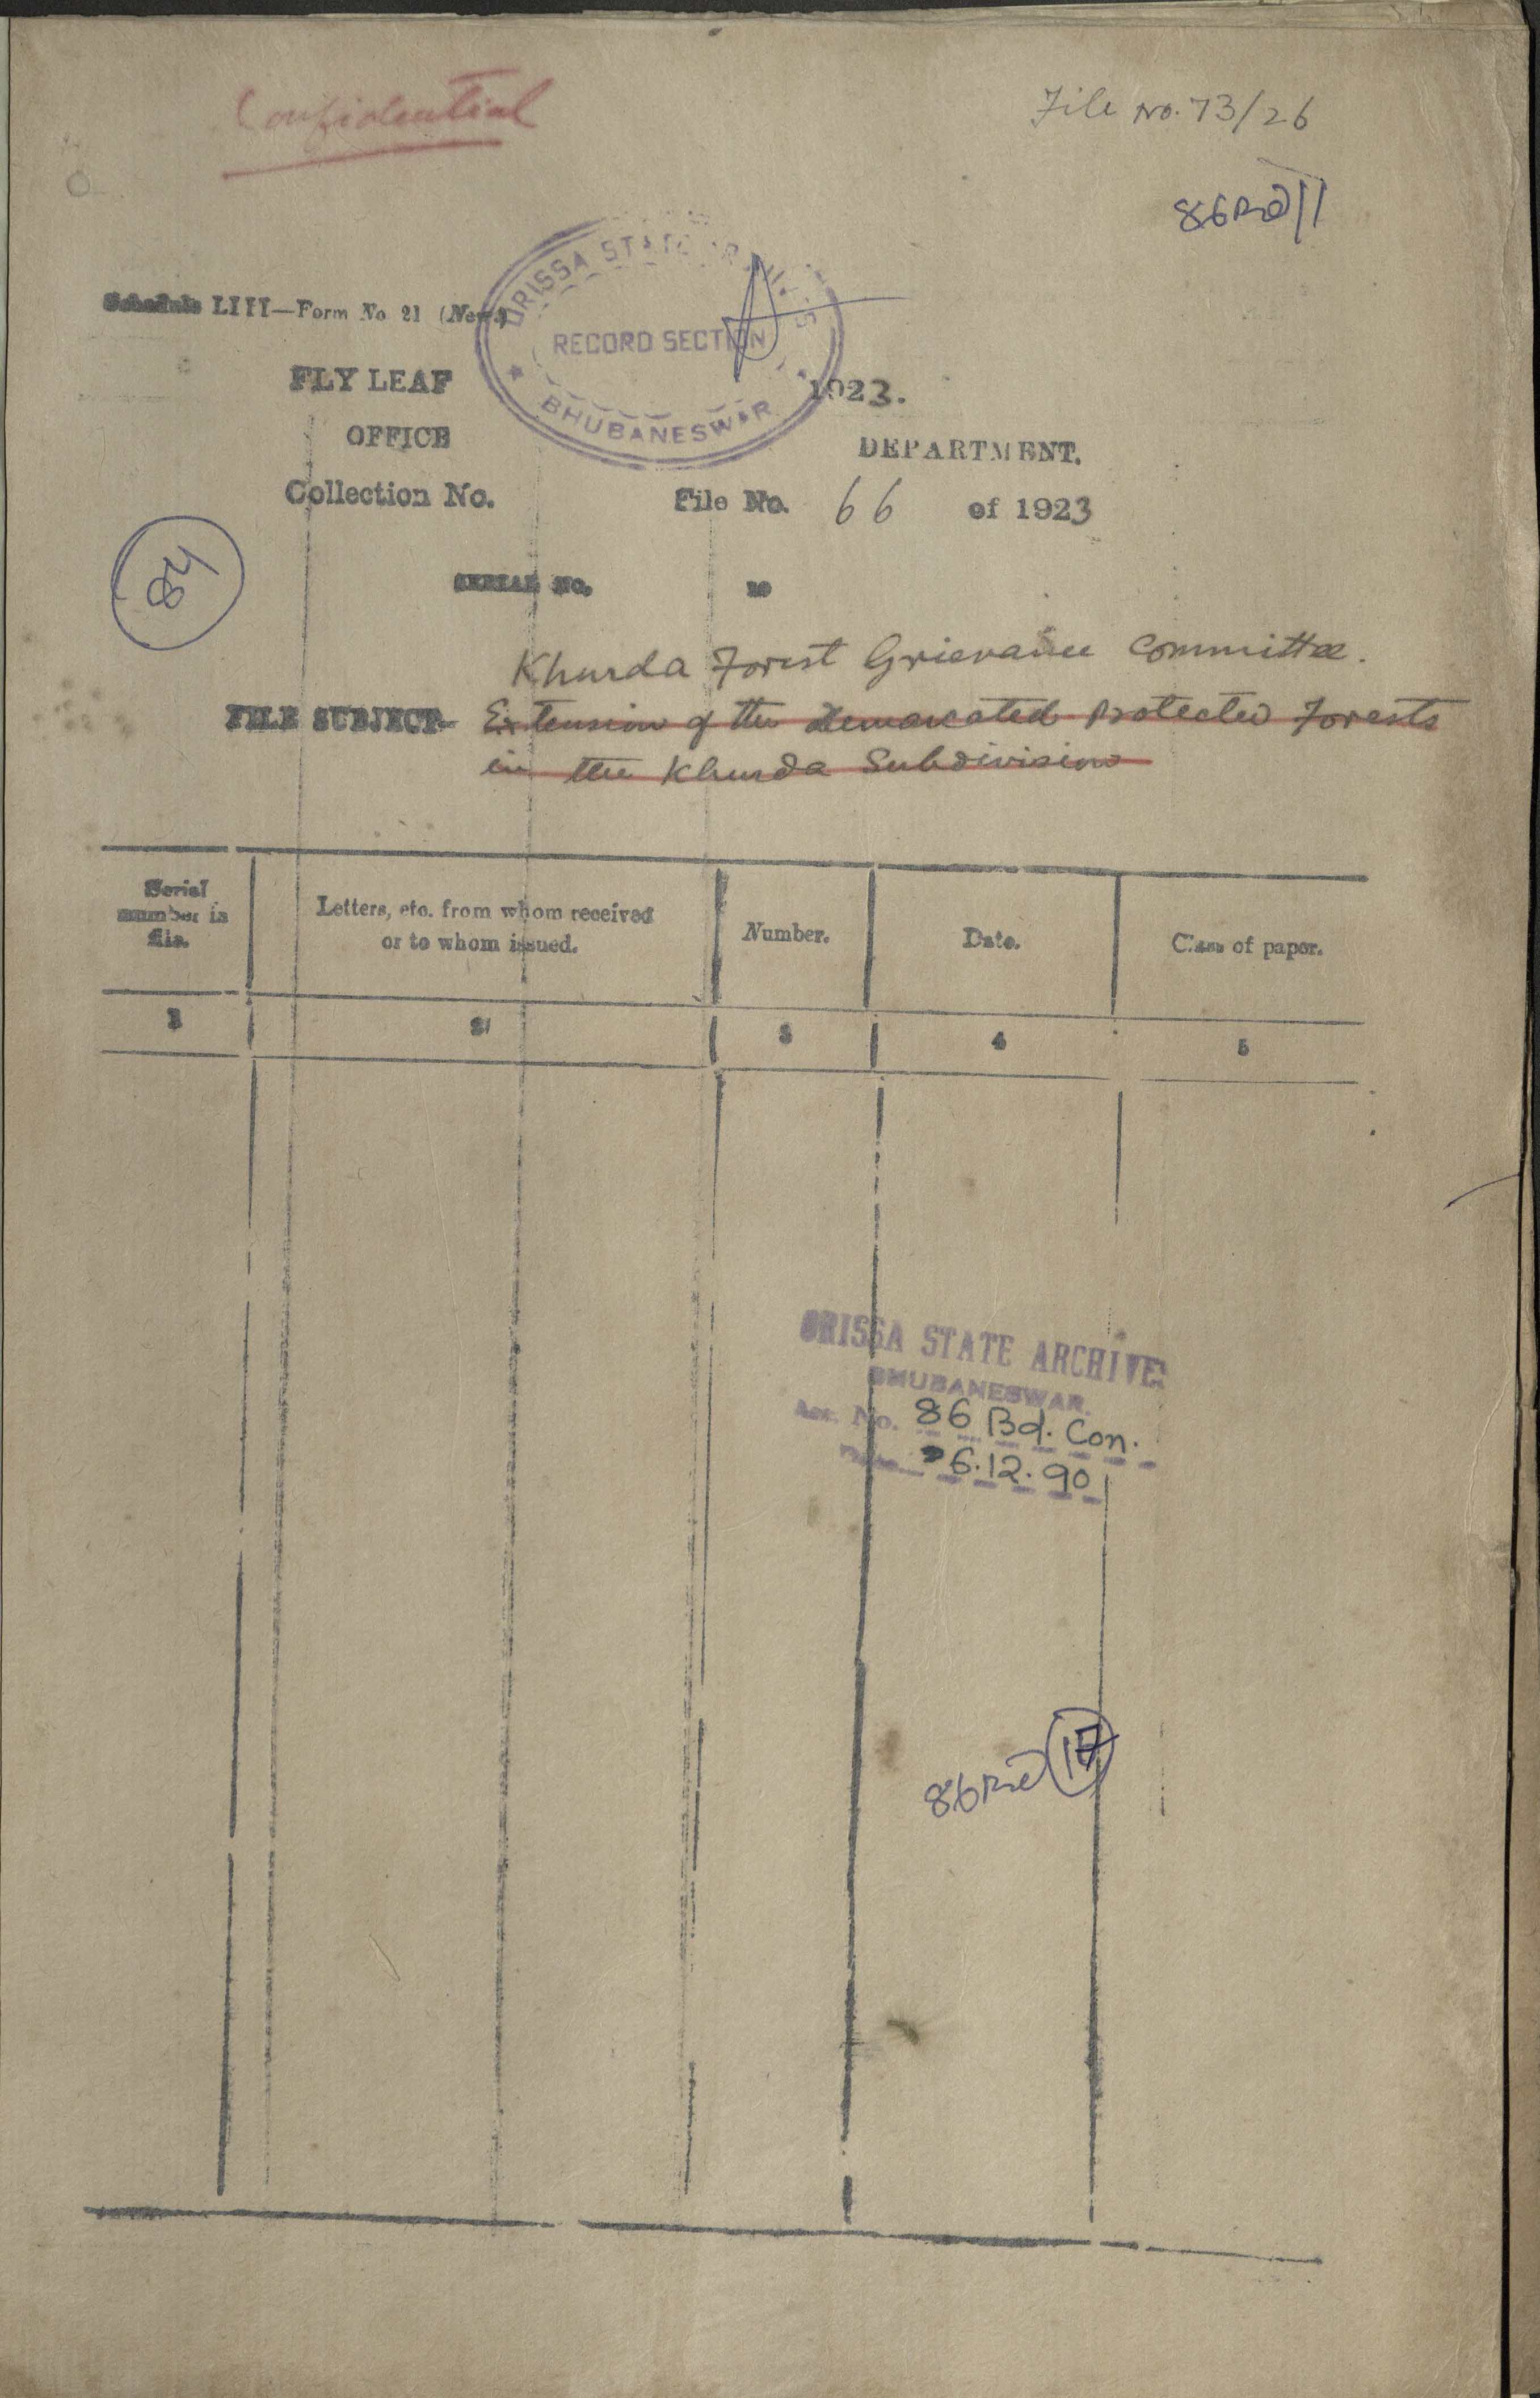 Confidential
File No. 73/26
86 Bd/1
Schedule LIII—Form No 21 (New.)
ORISSA STATE ARCHIVES
RECORD SECTION
BHUBANESWAR
FLY LEAF
1923.
OFFICE
DEPARTMENT.
Collection No. File No. 66 of 1923
84
SERIAL NO. to
Khurda Forest Grievance Committee.
FILE SUBJECT— Extension of the demarcated Protected Forests
in the Khurda Subdivision
Serial number in file.
Letters, etc. from whom received or to whom issued.
Number.
Date.
Class of paper.
1 2 3 4 5
ORISSA STATE ARCHIVES
BHUBANESWAR.
Acc. No. 86 Bd. Con.
Date 6.12.90
86 Bd 17